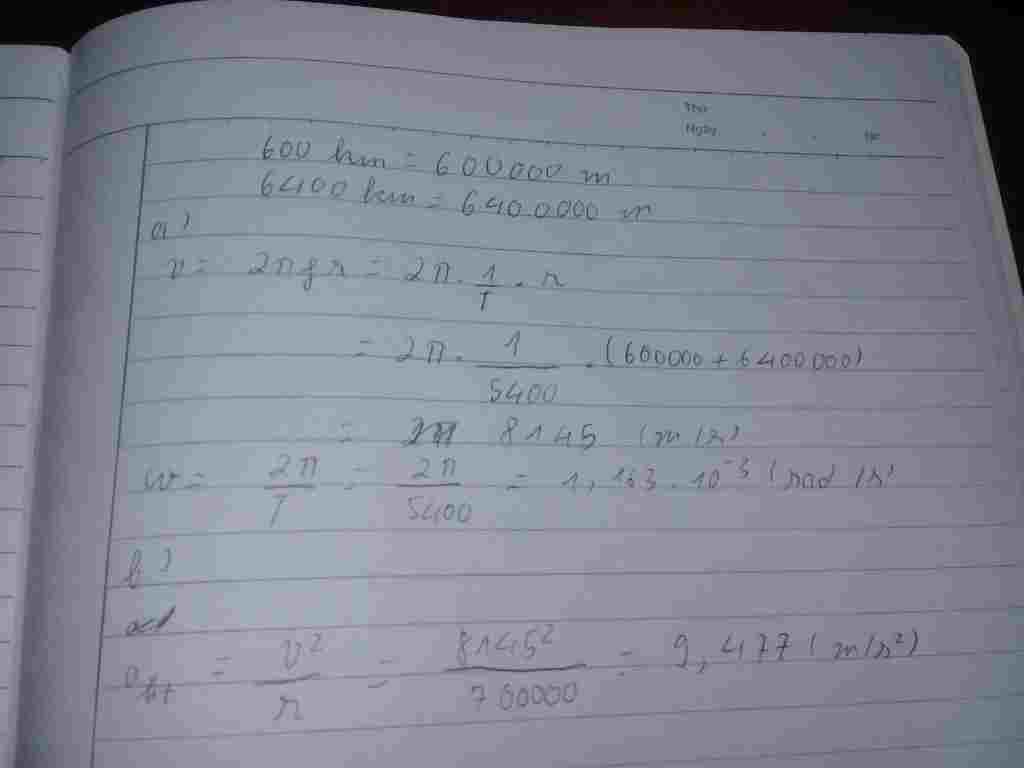 Thứ
Ngày . . No
600 km = 600000 m
6400 km = 6400000 m
a)
v = 2πfr = 2π . 1/T . r
= 2π . 1/5400 . (600000 + 6400000)
= 8145 (m/s)
w = 2π/T = 2π/5400 = 1,163 . 10⁻³ (rad/s)
b)
a_ht = v²/r = 8145²/700000 = 9,477 (m/s²)